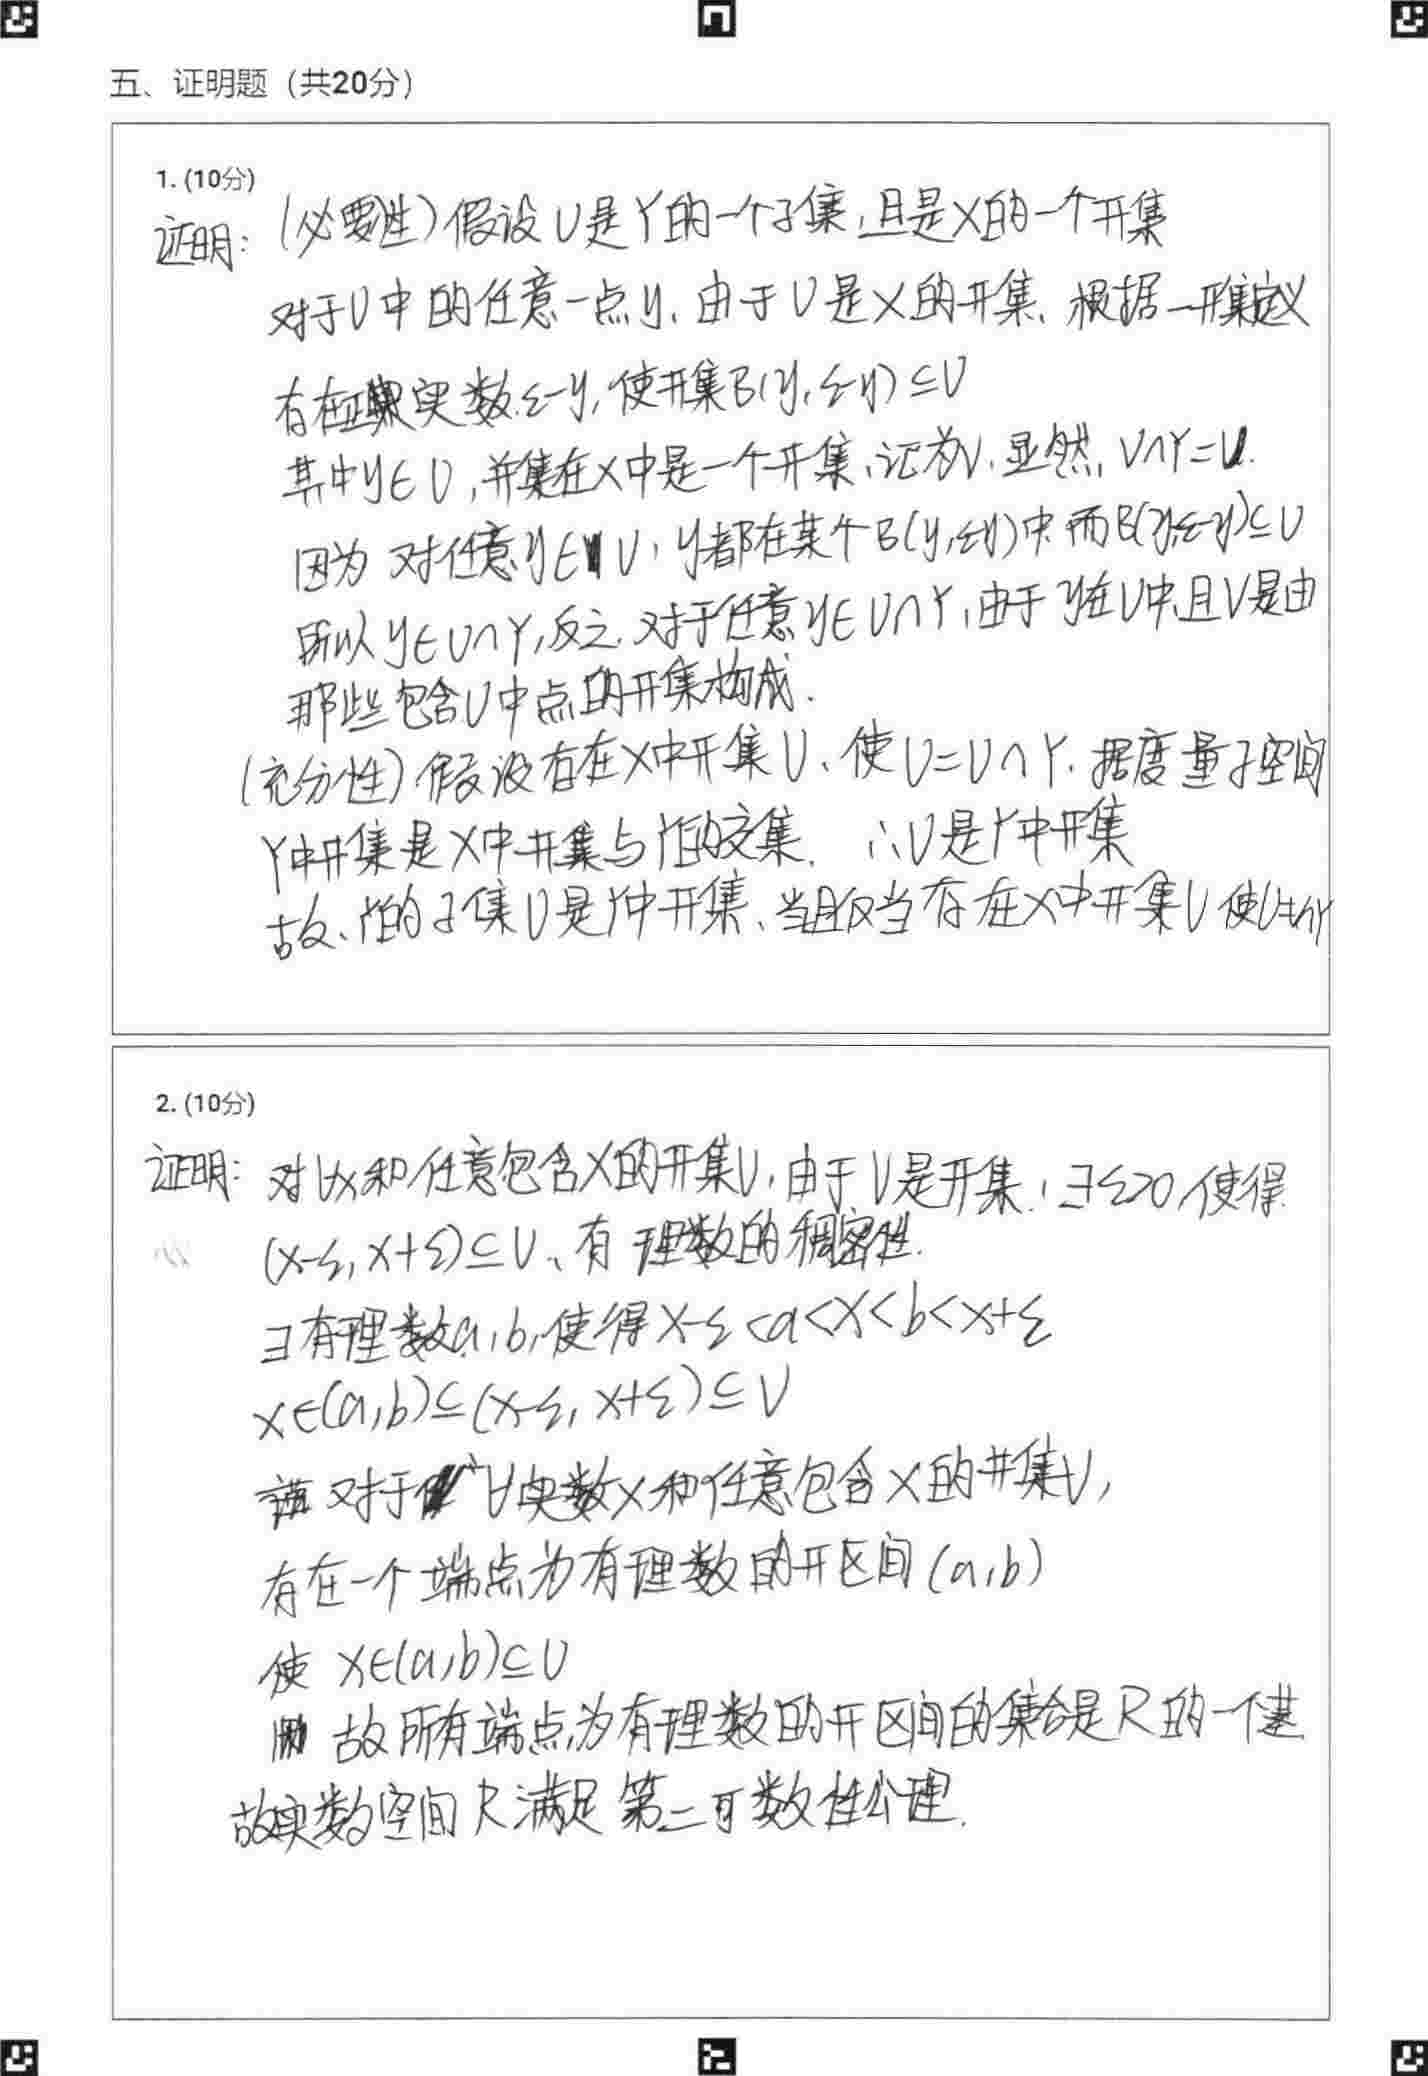 五、证明题（共20分）
1. (10分)
证明：(必要性) 假设U是Y的一个子集，且是X的一个开集
对于U中的任意一点y，由于U是X的开集，根据开集定义
存在正实数ε-y，使开集B(y, ε-y)⊆U
其中y∈U，并集在X中是一个开集，记为V，显然，V∩Y=U.
因为 对任意y∈U，y都在某个B(y,εy)中 而B(y,ε-y)⊆U
所以y∈U∩Y，反之，对于任意y∈U∩Y，由于y在U中且V是由
那些包含U中点的开集构成.
(充分性) 假设存在X中开集U，使U=U∩Y. 据度量子空间
Y中开集是X中开集与Y的交集. ∴U是Y中开集
故、Y的子集U是Y中开集、当且仅当存在X中开集U 使U=U∩Y
2. (10分)
证明：对∀x和任意包含X的开集U，由于U是开集，∃ε>0，使得
(x-ε, x+ε)⊆U、有理数的稠密性.
∃有理数a,b,使得x-ε<a<x<b<x+ε
x∈(a,b)⊆(x-ε, x+ε)⊆U
对于∀实数x和任意包含X的开集U，
存在一个端点为有理数的开区间(a,b)
使 x∈(a,b)⊆U
故所有端点为有理数的开区间的集合是R的一个基
故实数空间R满足第二可数性公理.